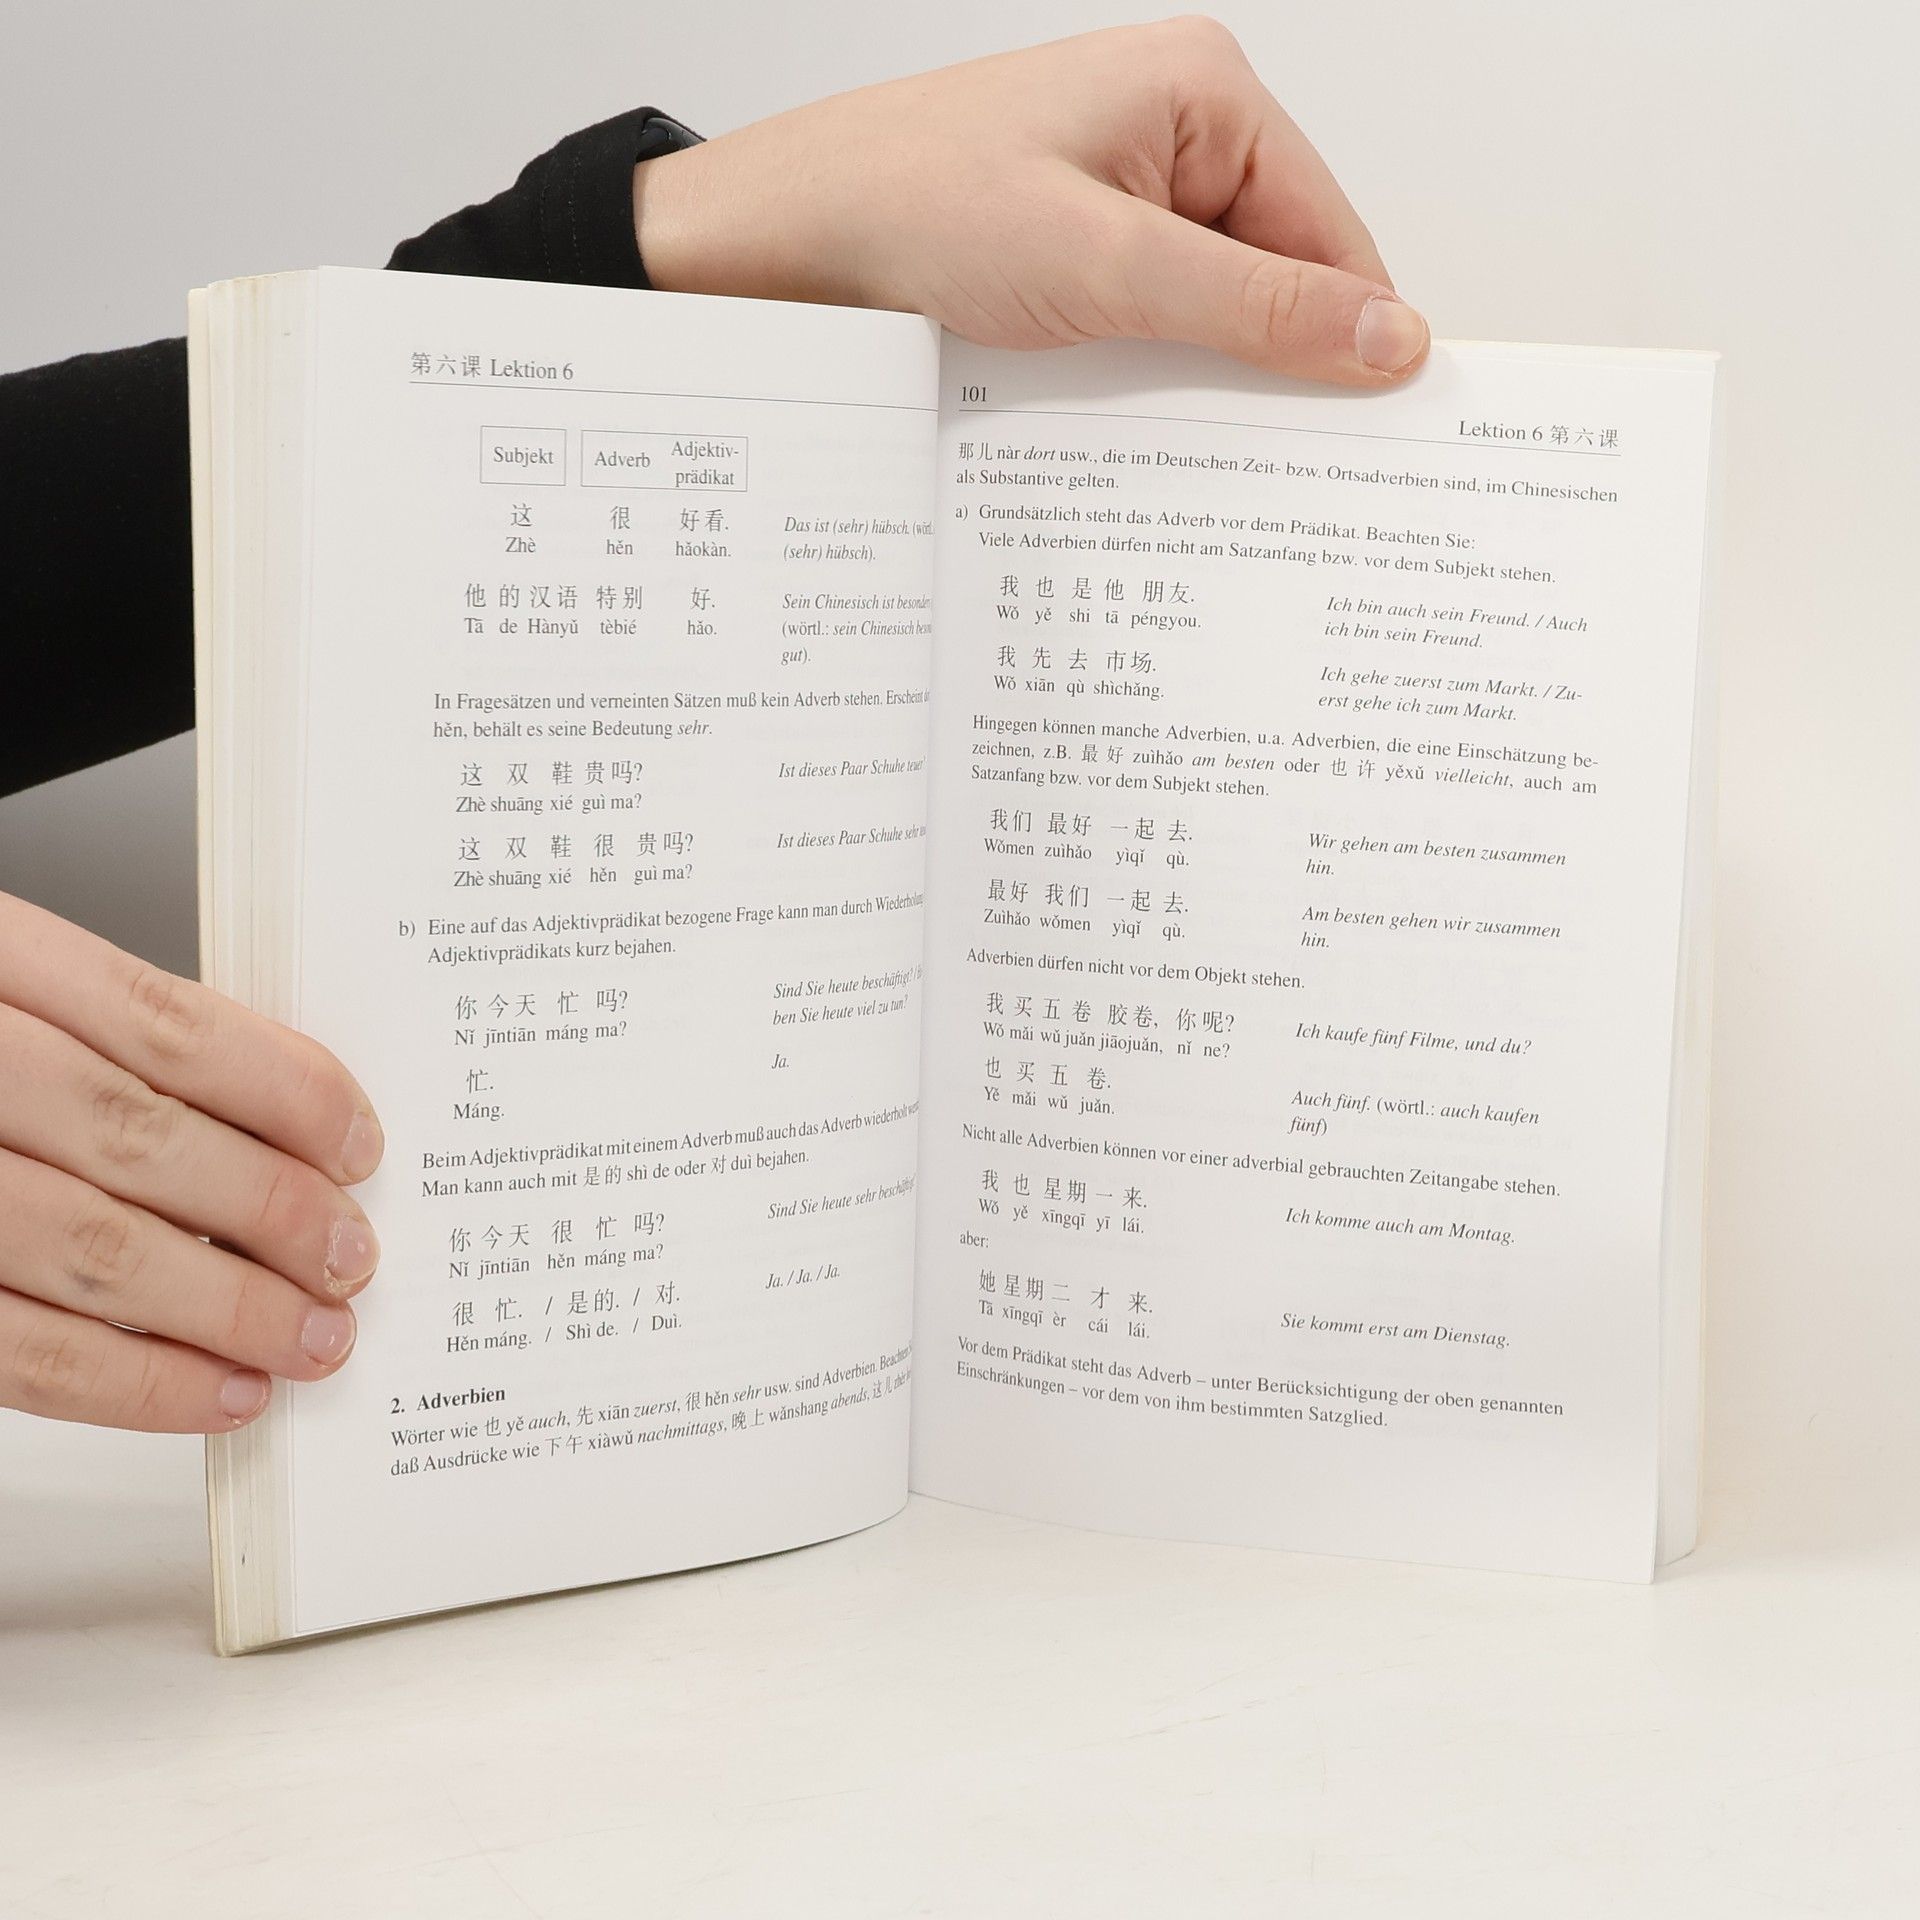 第六课 Lektion 6
Subjekt Adverb Adjektiv-
prädikat
这 很 好看. Das ist (sehr) hübsch.
Zhè hěn hǎokàn. (sehr) hübsch).
他 的 汉语 特别 好. Sein Chinesisch ist
Tā de Hànyǔ tèbié hǎo. (wörtl.: sein Chinesisch
gut).
In Fragesätzen und verneinten Sätzen muß kein Adverb stehen. Erscheint
hěn, behält es seine Bedeutung sehr.
这 双 鞋 贵吗? Ist dieses Paar Schuhe teuer?
Zhè shuāng xié guì ma?
这 双 鞋 很 贵吗? Ist dieses Paar Schuhe sehr
Zhè shuāng xié hěn guì ma?
b) Eine auf das Adjektivprädikat bezogene Frage kann man durch Wiederholung
Adjektivprädikats kurz bejahen.
你 今天 忙 吗? Sind Sie heute beschäftigt? /
Nǐ jīntiān máng ma? ben Sie heute viel zu tun?
忙. Ja.
Máng.
Beim Adjektivprädikat mit einem Adverb muß auch das Adverb wiederholt
Man kann auch mit 是的 shì de oder 对 duì bejahen.
你 今天 很 忙 吗? Sind Sie heute sehr beschäftigt?
Nǐ jīntiān hěn máng ma?
很 忙. / 是的. / 对. Ja. / Ja. / Ja.
Hěn máng. / Shì de. / Duì.
2. Adverbien
Wörter wie 也 yě auch, 先 xiān zuerst, 很 hěn sehr usw. sind Adverbien.
daß Ausdrücke wie 下午 xiàwǔ nachmittags, 晚上 wǎnshang abends, 这儿
101
Lektion 6 第六课
那儿 nàr dort usw., die im Deutschen Zeit- bzw. Ortsadverbien sind, im Chinesischen
als Substantive gelten.
a) Grundsätzlich steht das Adverb vor dem Prädikat. Beachten Sie:
Viele Adverbien dürfen nicht am Satzanfang bzw. vor dem Subjekt stehen.
我 也 是 他 朋友. Ich bin auch sein Freund. / Auch
Wǒ yě shi tā péngyou. ich bin sein Freund.
我 先 去 市场. Ich gehe zuerst zum Markt. / Zu-
Wǒ xiān qù shìchǎng. erst gehe ich zum Markt.
Hingegen können manche Adverbien, u.a. Adverbien, die eine Einschätzung be-
zeichnen, z.B. 最好 zuìhǎo am besten oder 也许 yěxǔ vielleicht, auch am
Satzanfang bzw. vor dem Subjekt stehen.
我们 最好 一起 去. Wir gehen am besten zusammen
Wǒmen zuìhǎo yìqǐ qù. hin.
最好 我们 一起 去. Am besten gehen wir zusammen
Zuìhǎo wǒmen yìqǐ qù. hin.
Adverbien dürfen nicht vor dem Objekt stehen.
我 买 五 卷 胶卷, 你 呢? Ich kaufe fünf Filme, und du?
Wǒ mǎi wǔ juǎn jiāojuǎn, nǐ ne?
也 买 五 卷. Auch fünf. (wörtl.: auch kaufen
Yě mǎi wǔ juǎn. fünf)
Nicht alle Adverbien können vor einer adverbial gebrauchten Zeitangabe stehen.
我 也 星期 一 来. Ich komme auch am Montag.
Wǒ yě xīngqī yī lái.
aber:
她 星期 二 才 来. Sie kommt erst am Dienstag.
Tā xīngqī èr cái lái.
Vor dem Prädikat steht das Adverb – unter Berücksichtigung der oben genannten
Einschränkungen – vor dem von ihm bestimmten Satzglied.